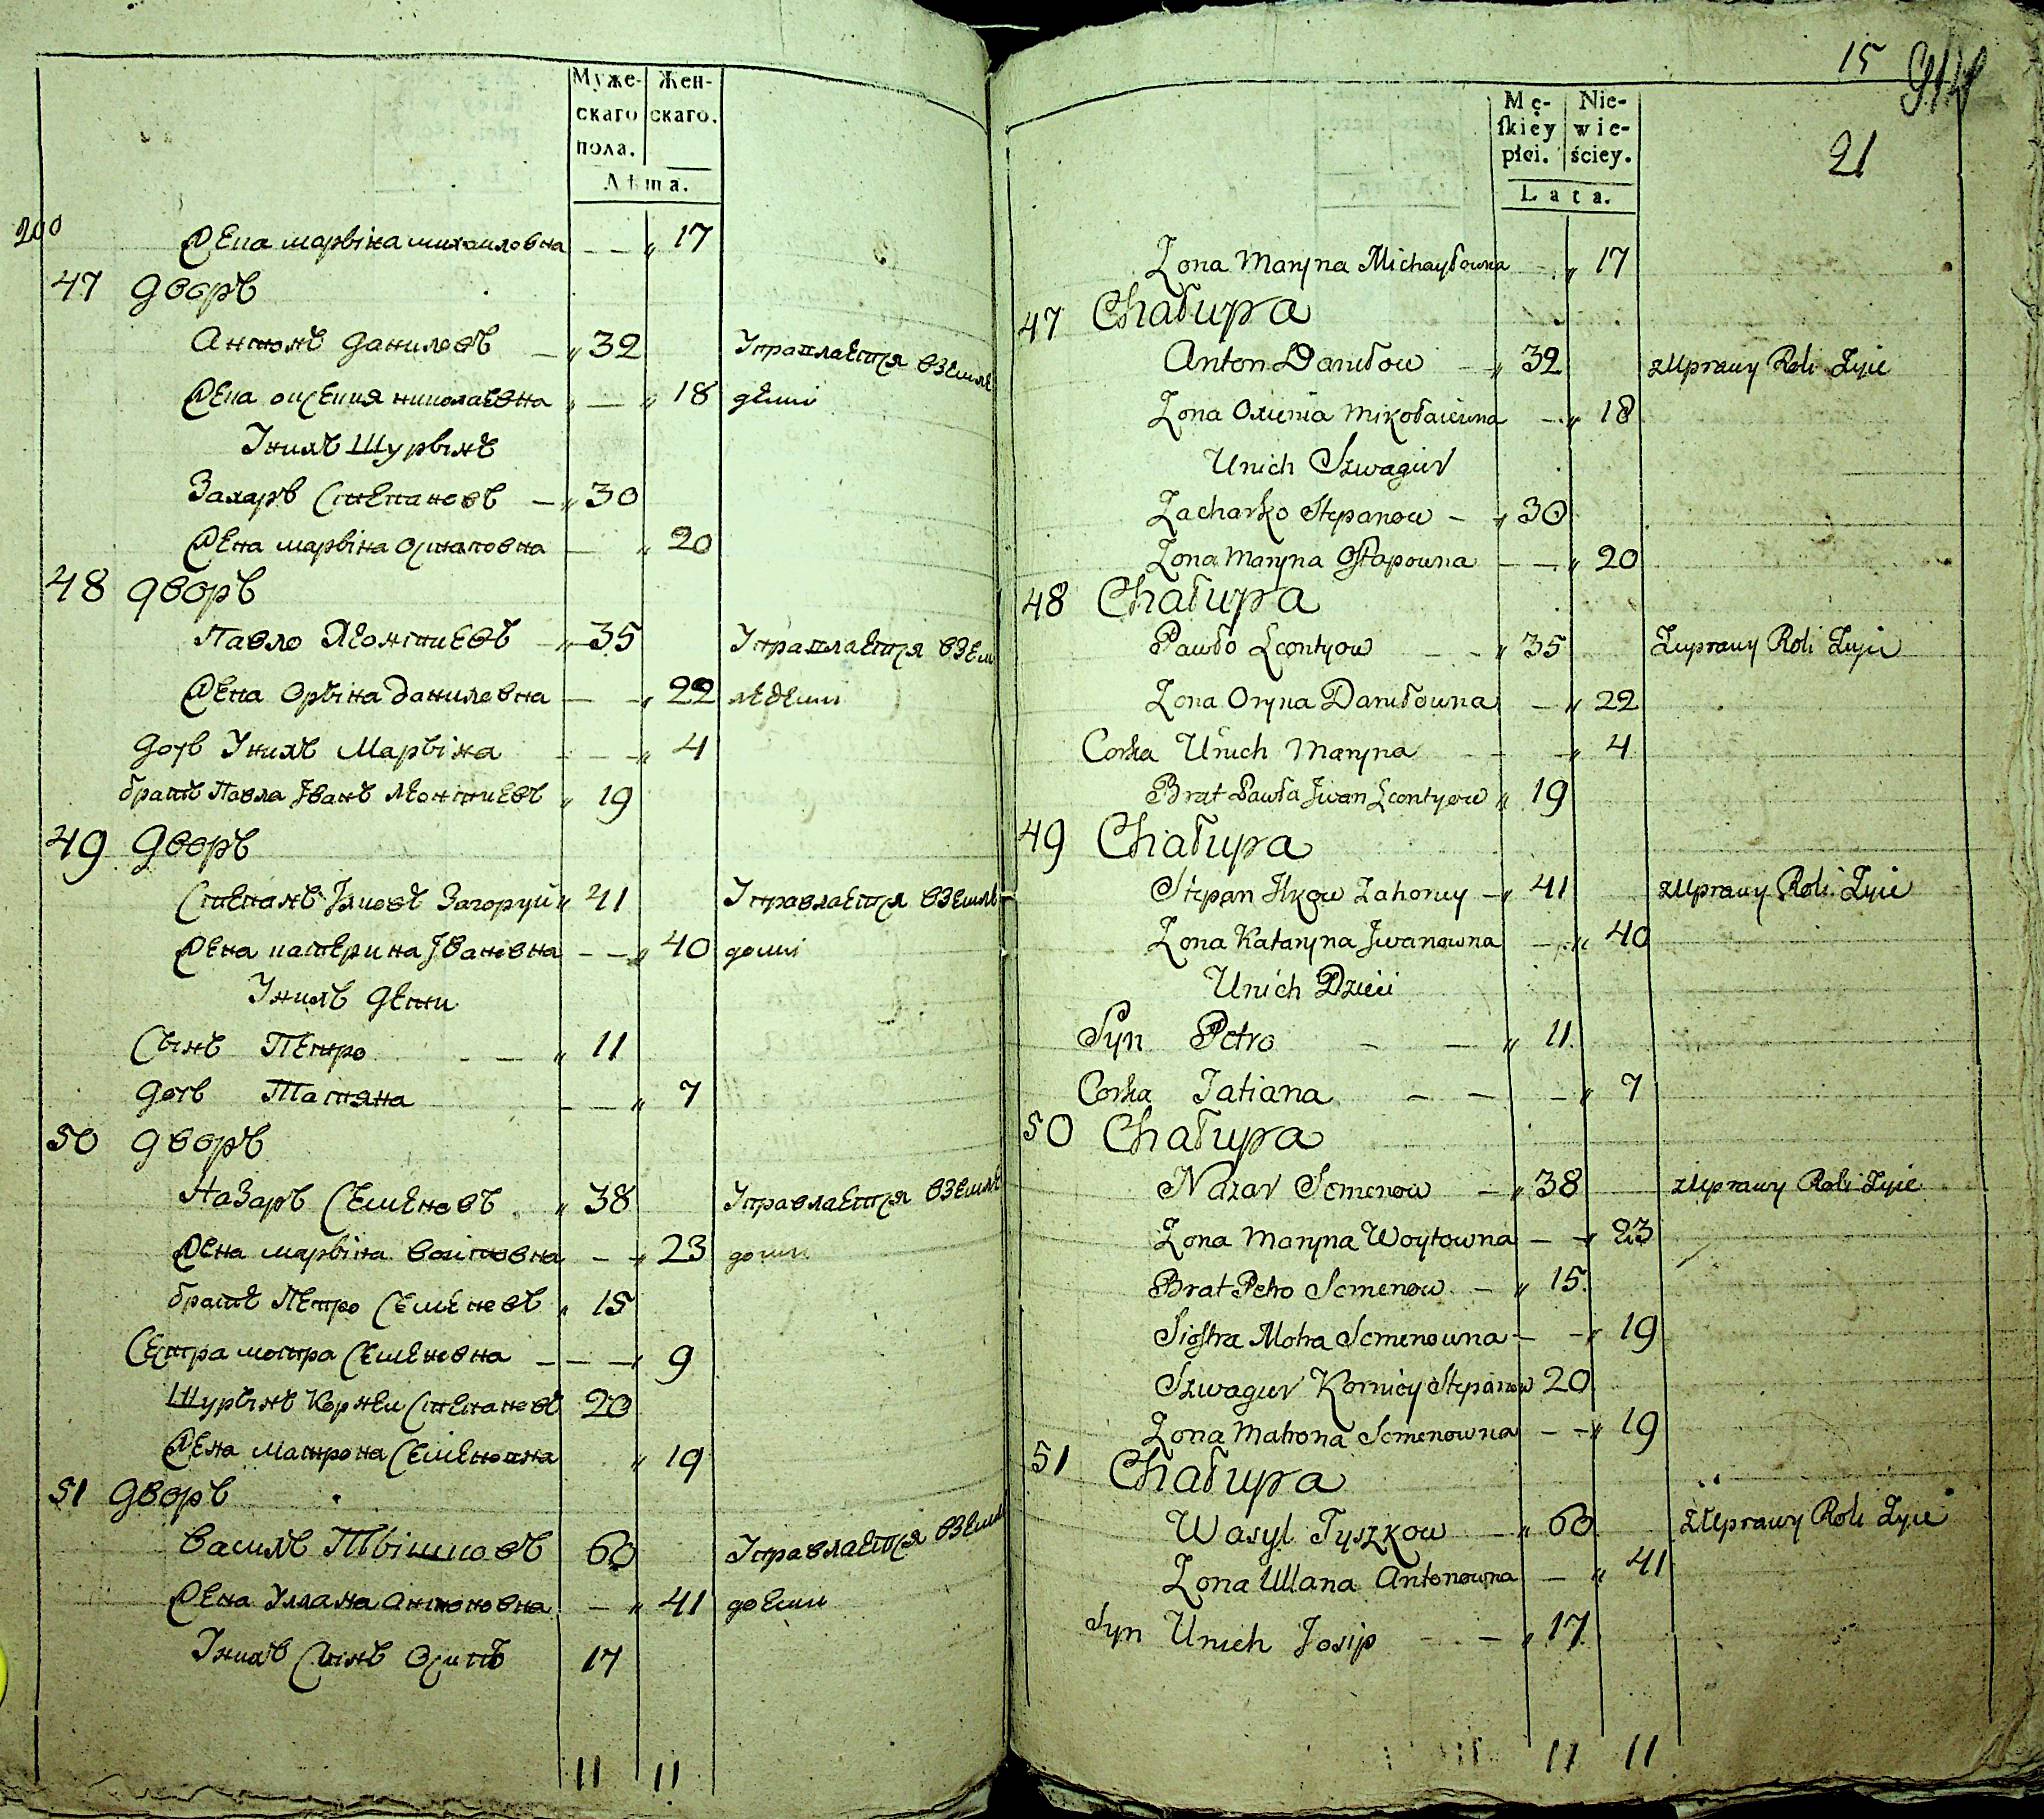 Муже-
скаго
пола.
Жен-
скаго.
Лѣта.
200
Жена марьіна михаиловна — — „ 17
47 дворъ
Антонъ даниловъ — „ 32 Управляется вземле
Жена оксения николаевна „ — „ 18 делии
Унихъ Шурьінъ
Захаръ Степановъ — „ 30
Жена марьіна остаповна — „ 20
48 дворъ
Павло Леонтиевъ — „ 35 Управляется взем
Жена Орьіна даниловна — — „ 22
Дочь Унихъ Марьіна — — — „ 4
братъ Павла Іванъ Леонтиевъ „ 19
49 дворъ
Степанъ Ілковъ Загоруй „ 41 Управляется вземле
Жена катерина Івановна — — „ 40
Унихъ дети
Сынъ Петро — — „ 11
Дочь Татяна — — „ 7
50 дворъ
Назаръ Семеновъ „ 38 Управляется вземле
Жена марьіна воитовна — „ 23
братъ Петро Семеновъ „ 15
Сестра мотра Семеновна — — — „ 9
Шурьінъ Корнеи Степановъ 20
Жена Матрона Семеновна „ 19
51 дворъ
Василь Тьішковъ 60 Управляется вземл
Жена Уляна антоновна — „ 41
Унихъ Сьінъ Осипъ 17
11 11
15
21
Mę-
ſkiey
płci.
Nie-
wie-
ściey.
Lata.
Zona Maryna Michayłowna — „ 17
47 Chałupa
Anton Daniłow — „ 32 z Uprawy Roli Zyie
Zona Oxienia Mikołaiewna — „ 18
Unich Szwagier
Zacharko Stepanow — „ 30
Zona Maryna Oſtapowna — — „ 20
48 Chałupa
Pawło Leontyow — — „ 35 Zuprawy Roli Zyie
Zona Oryna Daniłowna — „ 22
Corka Unich Maryna — — — „ 4
Brat Pawła Jwan Leontyow „ 19
49 Chałupa
Stepan Ilkow Zahoruy — „ 41 z Uprawy Roli Zyie
Zona Kataryna Jwanowna — „ 40
Unich Dzieci
Syn Petro — — „ 11
Corka Tatiana — — — „ 7
50 Chałupa
Nazar Semenow — „ 38 z Uprawy Roli Zyie
Zona Maryna Woytowna — — „ 23
Brat Petro Semenow — „ 15
Sioſtra Motra Semenowna — — „ 19
Szwagier Korniey Stepanow 20
Zona Matrona Semenowna — — „ 19
51 Chałupa
Wasyl Tyszkow — „ 60 z Uprawy Roli Zyie
Zona Ullana Antonowna — „ 41
Syn Unich Josip — — „ 17
11 11